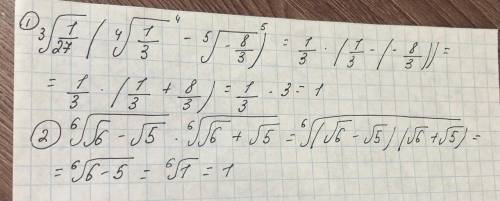 ① ∛(1/27) ( ∜(1/3)⁴ − ⁵√(−8/3)⁵ ) = 1/3 · (1/3 − (−8/3)) =
= 1/3 · (1/3 + 8/3) = 1/3 · 3 = 1
② ⁶√(√6 − √5) · ⁶√(√6 + √5) = ⁶√((√6 − √5)(√6 + √5)) =
= ⁶√(6 − 5) = ⁶√1 = 1